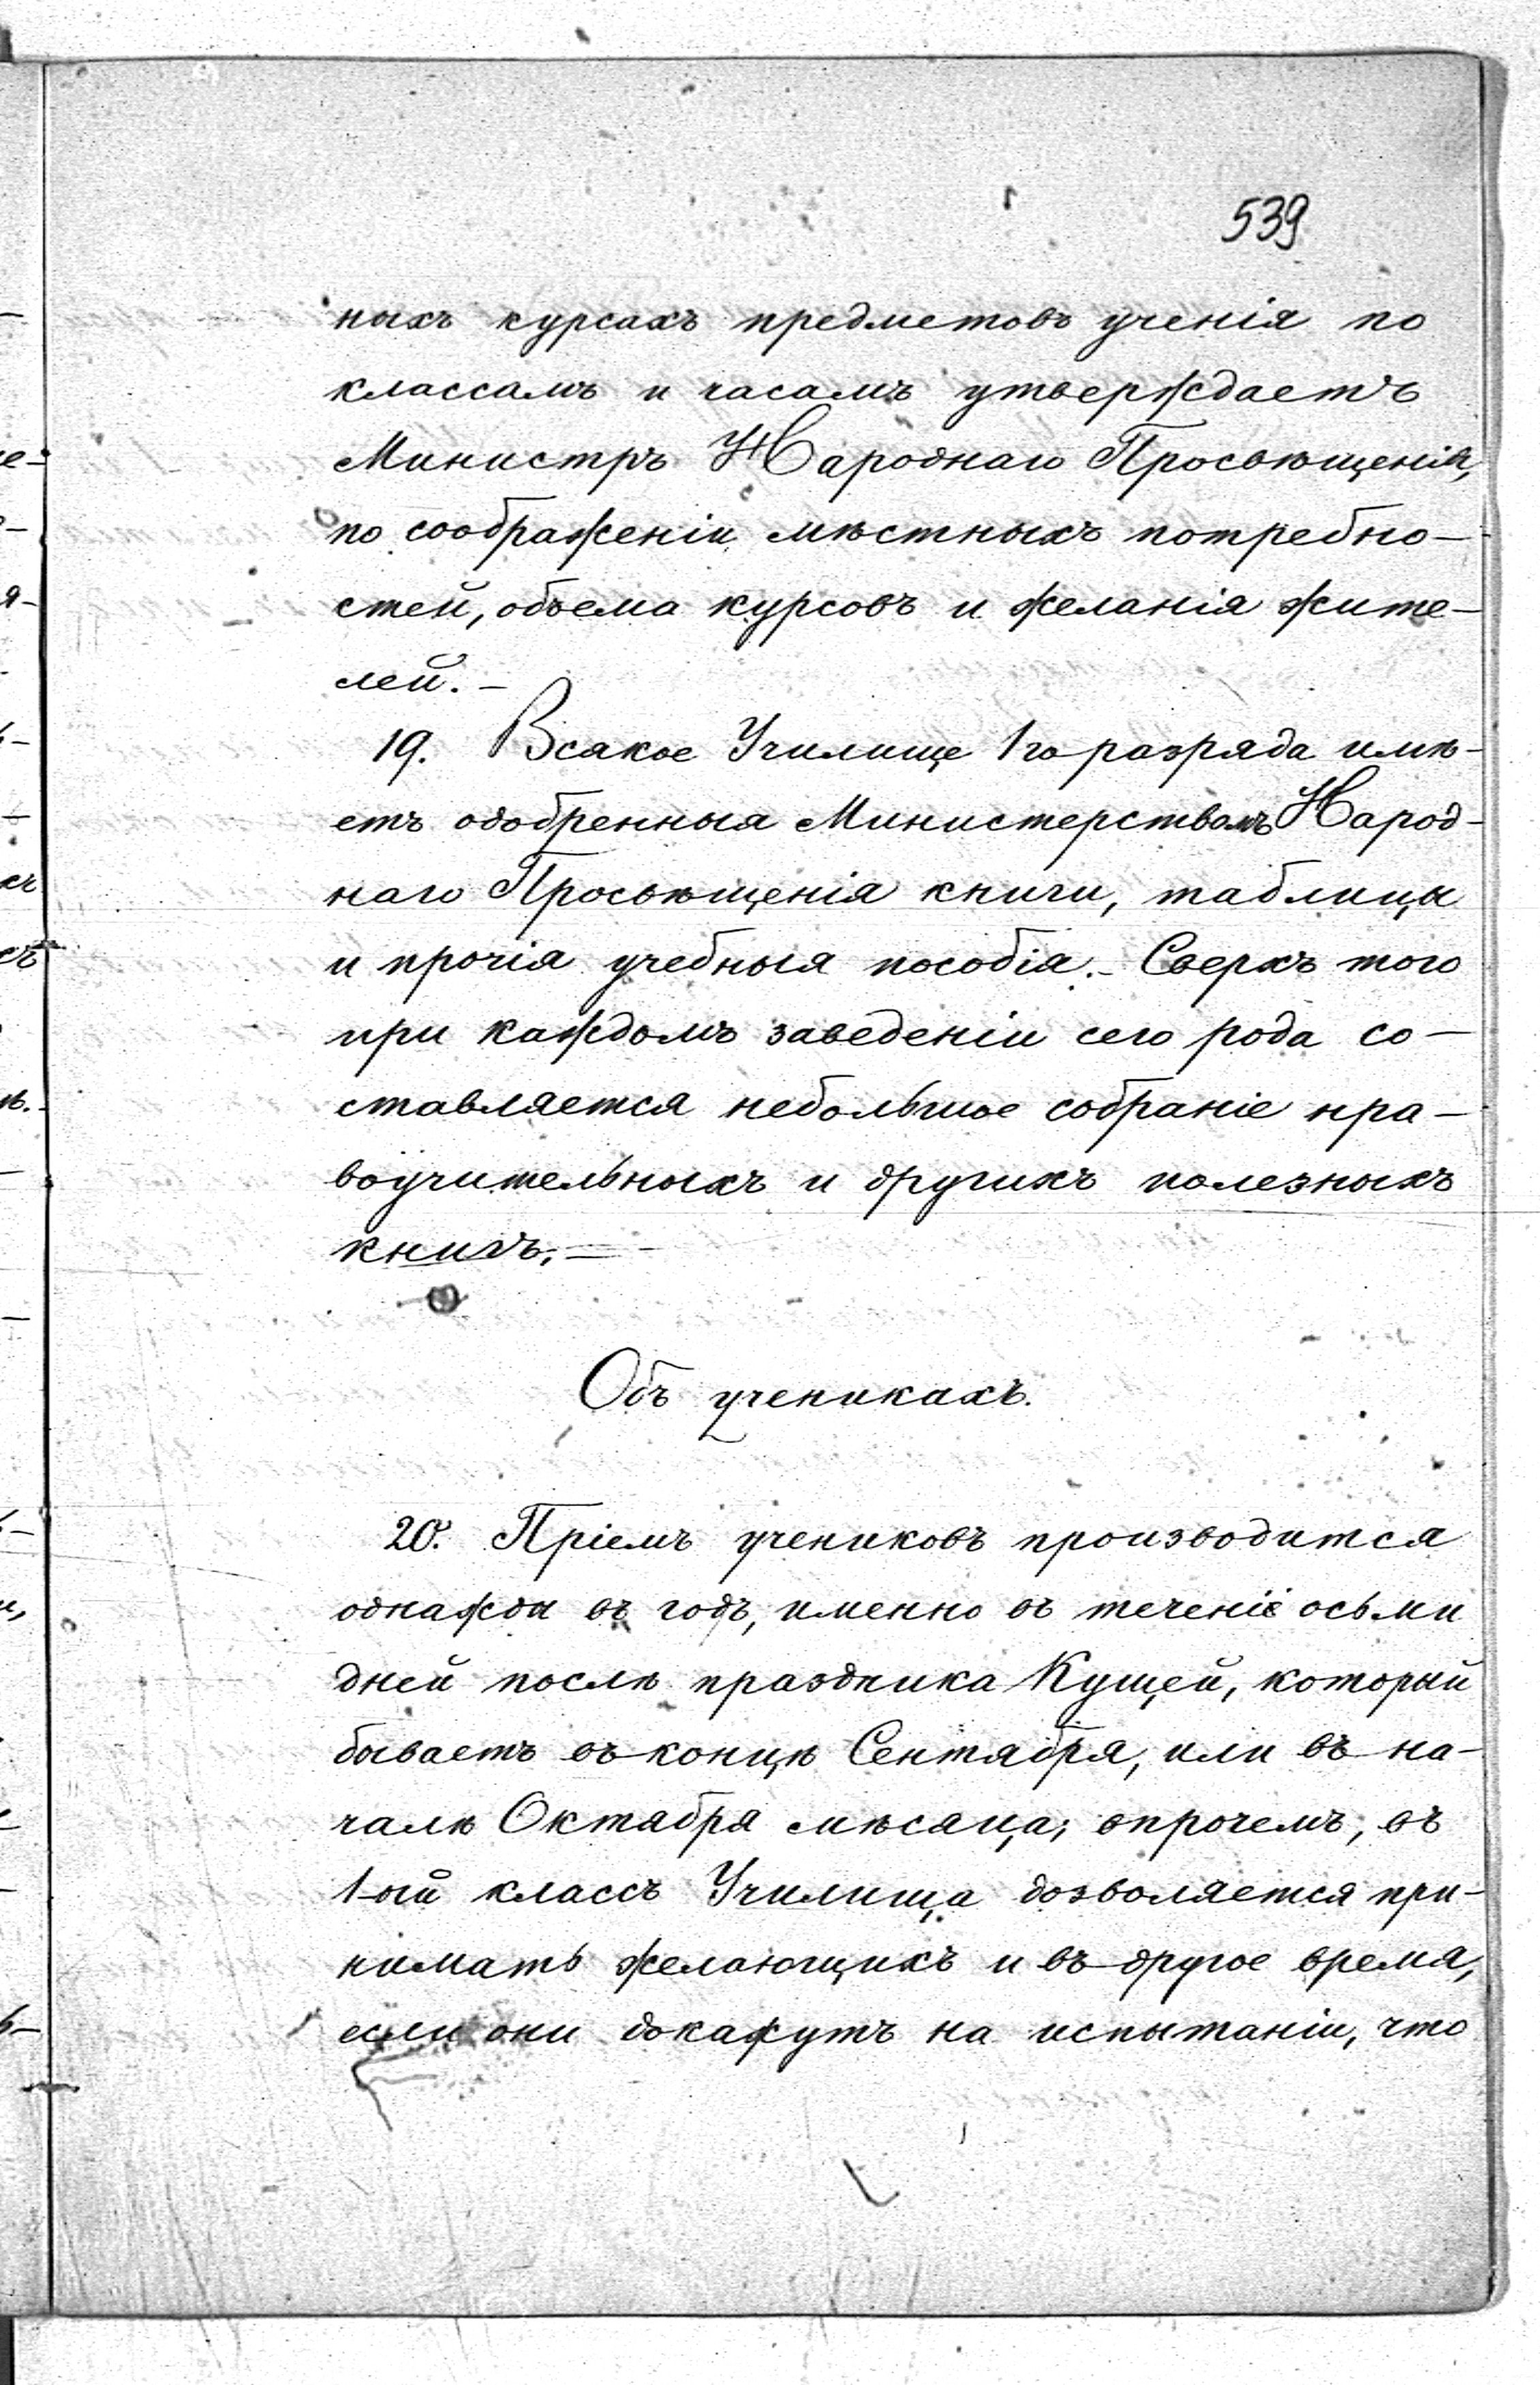 539
ныхъ курсахъ предметовъ ученія по
классамъ и часамъ утверждаетъ
Министръ Народнаго Просвѣщенія,
по соображеніи мѣстныхъ потребно-
стей, объема курсовъ и желанія жите-
лей. –
19. Всякое Училище 1го разряда имѣ-
етъ одобренныя Министерствомъ Народ-
наго Просвѣщенія книги, таблицы
и прочія учебныя пособія. – Сверхъ того
при каждомъ заведеніи сего рода со-
ставляется небольшое собраніе нра-
воучительныхъ и другихъ полезныхъ
книгъ. –
Объ ученикахъ.
20. Пріемъ учениковъ производится
однажды въ годъ, именно въ теченіе осьми
дней послѣ праздника Кущей, который
бываетъ въ концѣ Сентября, или въ на-
чалѣ Октября мѣсяца; впрочемъ, въ
1-ый классъ Училища дозволяется при-
нимать желающихъ и въ другое время,
если они докажутъ на испытаніи, что